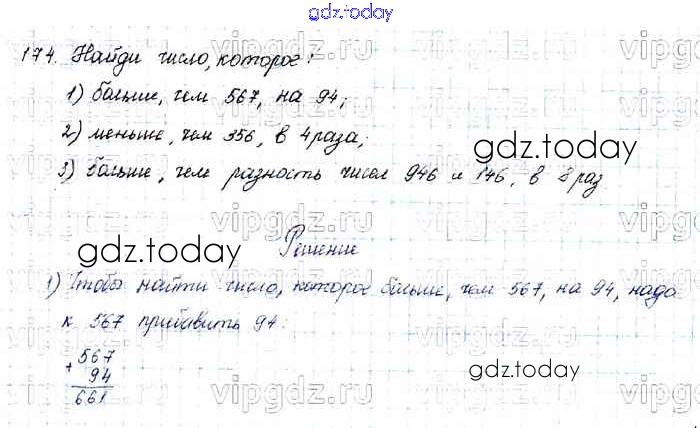 gdz.today
174. Найди число, которое:
1) больше, чем 567, на 94;
2) меньше, чем 356, в 4 раза;
3) больше, чем разность чисел 946 и 146, в 8 раз
gdz.today
gdz.today
Решение
1) Чтобы найти число, которое больше, чем 567, на 94, надо
к 567 прибавить 94:
+ 567
94
661
gdz.today
vipgdz.ru